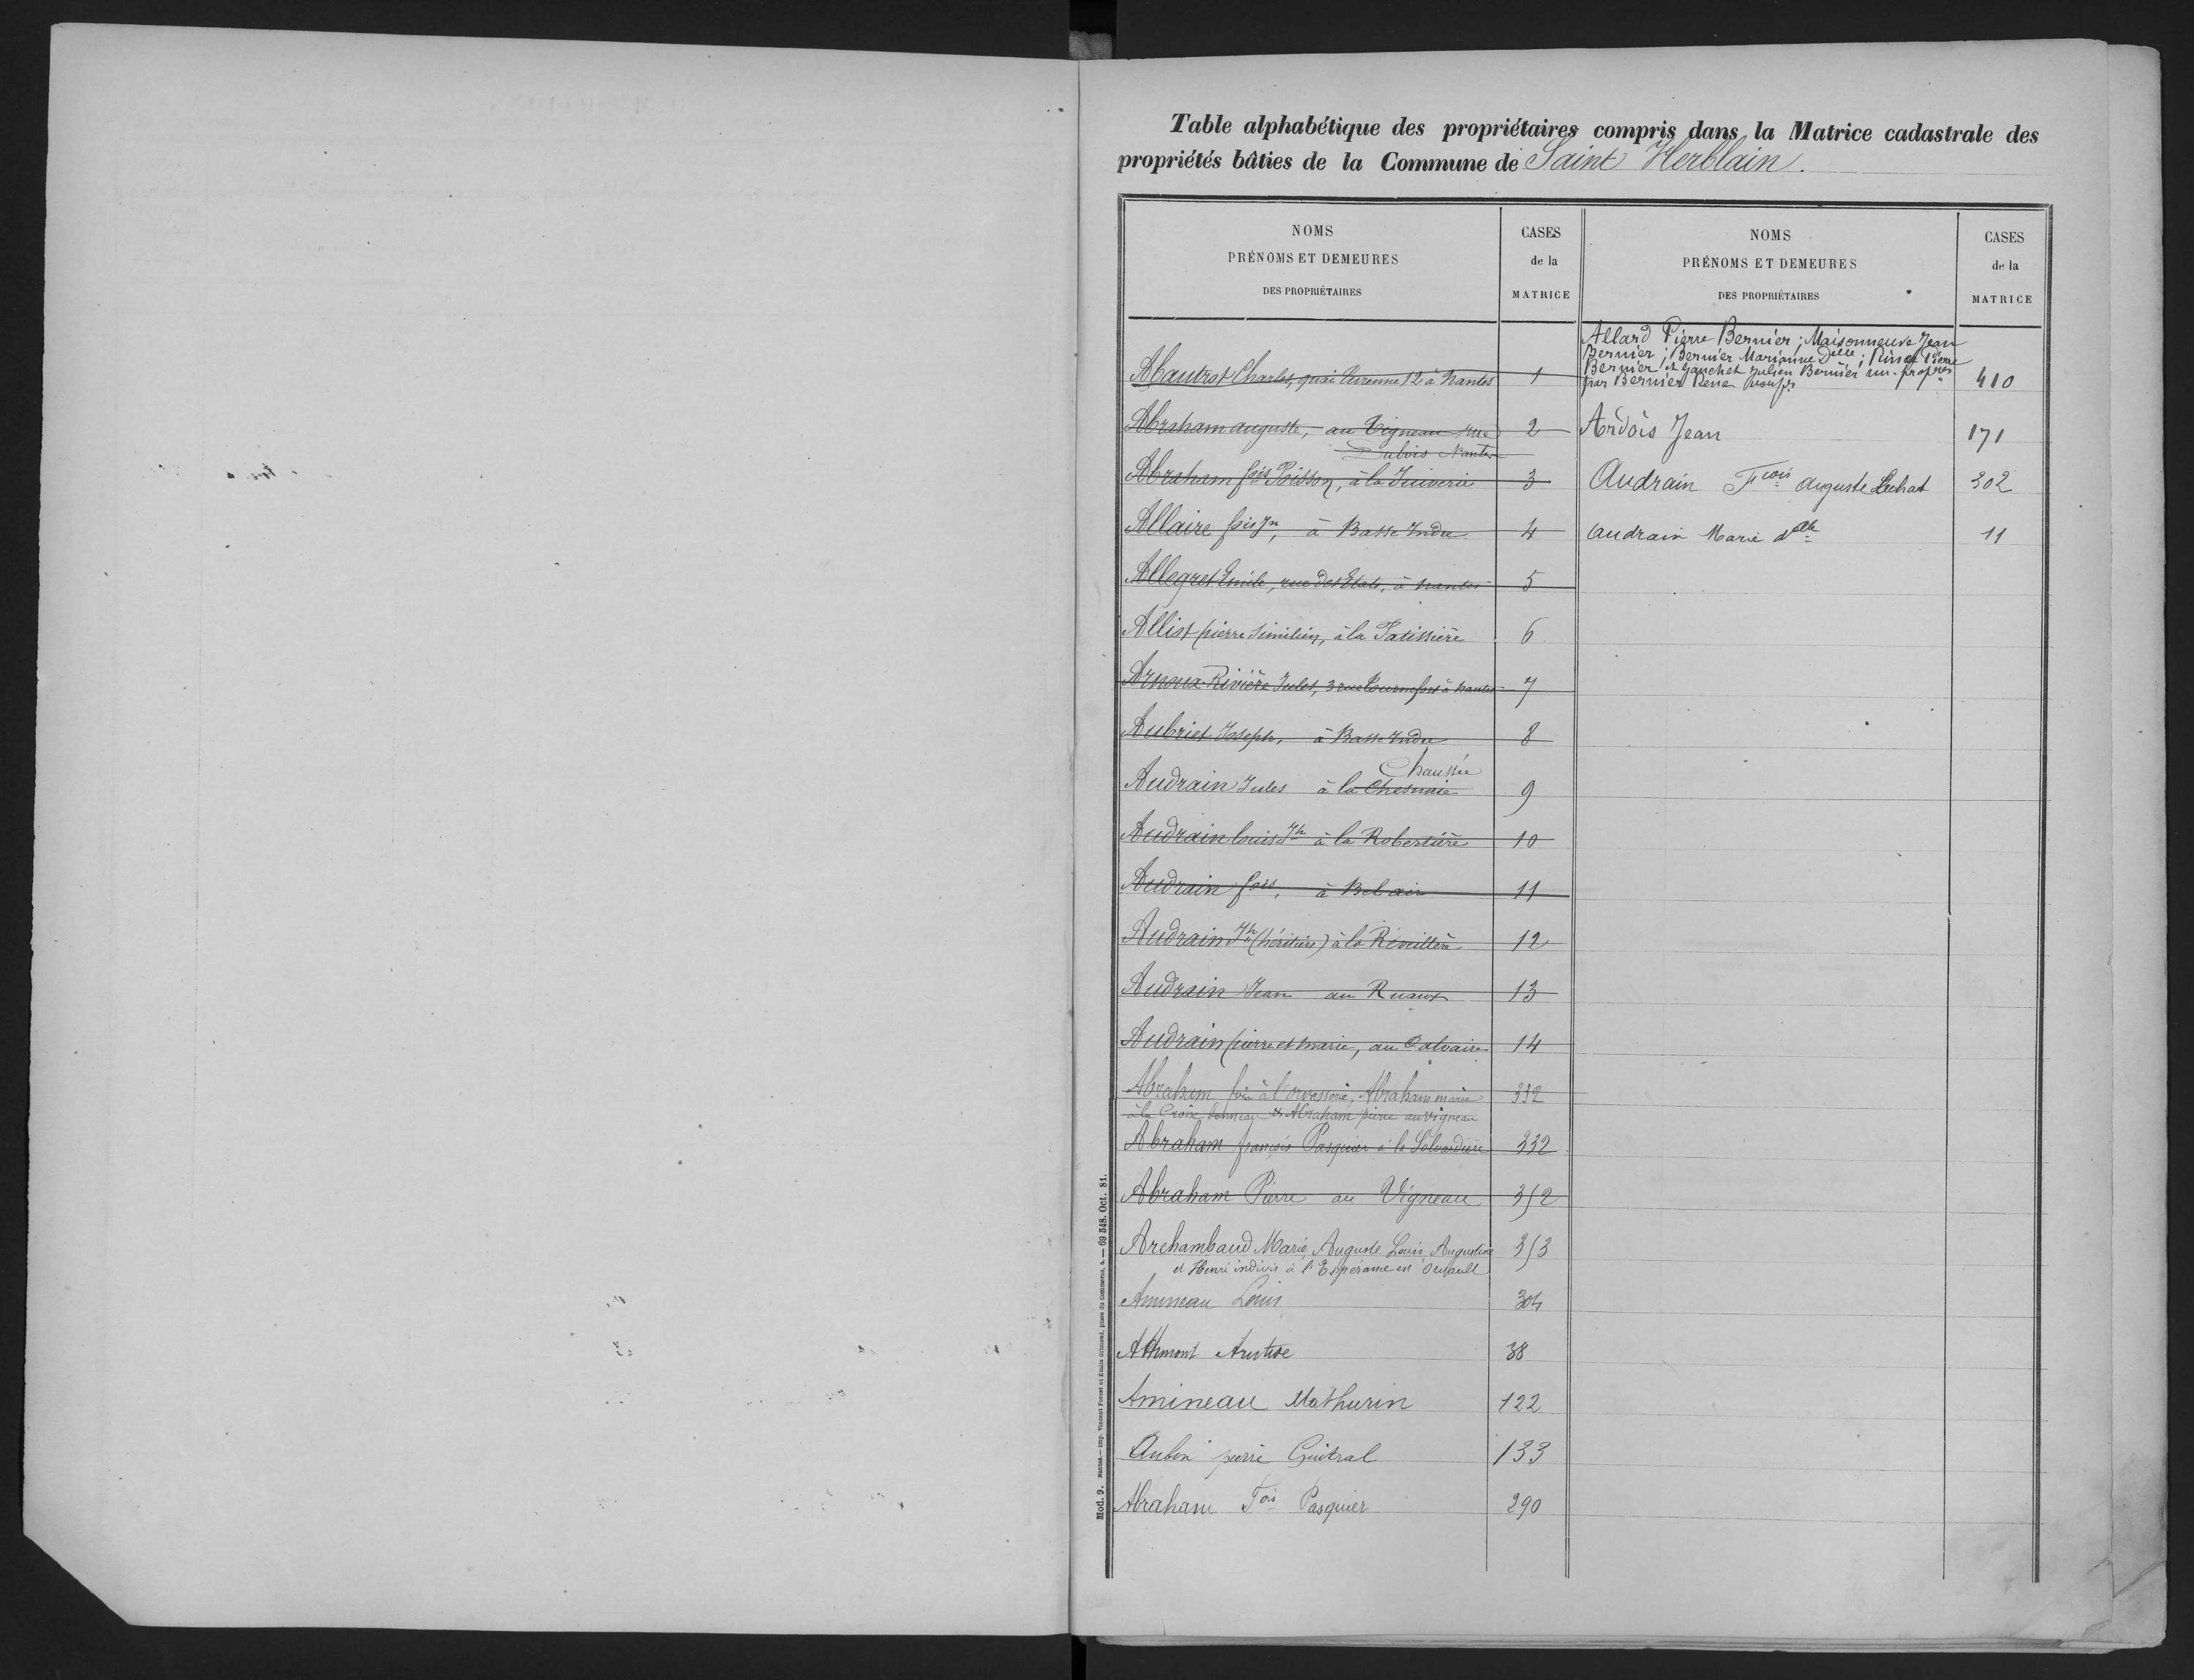 Table alphabétique des propriétaires compris dans la Matrice cadastrale des
propriétés bâties de la Commune de Saint Herblain.
NOMS
PRÉNOMS ET DEMEURES
DES PROPRIÉTAIRES
CASES
de la
MATRICE
Abautret Charles, quai Turenne 12 à Nantes 1
Abraham auguste, au Vigneau rue 2
Dubois Nantes
Abraham fois Poisson, à la Juiverie 3
Allaire fois Jn, à Basse Indre 4
Allegret Emile, rue des Etats, à Nantes 5
Alliot pierre Similien, à la Patissière 6
Arnoux-Rivière Jules, 3 rue Tournefort à Nantes 7
Aubriet Joseph, à Basse Indre 8
Chaussée
Audrain Jules à la Chesnaie 9
Audrain louis Jh à la Robertière 10
Audrain fois, à Bel air 11
Audrain Jh (héritiers) à la Réveillère 12
Audrain Jean au Ruaux 13
Audrain pierre et marie, au Calvaire 14
Abraham à l'orvasserie, Abraham marie 332
à la Croix bonneau & Abraham pierre au vigneau
Abraham françois Pasquier à la Solvardière 332
Abraham Pierre au Vigneau 352
Archambaud Marie, Auguste Louis Augustine 353
et Henri indivis à l'Espérance en Orvault
Amineau Louis 304
Athmont Aristide 38
Amineau Mathurin 122
Aubin pierre Guitral 133
Abraham Fois Pasquier 290
NOMS
PRÉNOMS ET DEMEURES
DES PROPRIÉTAIRES
CASES
de la
MATRICE
Allard Pierre Bernier; Maisonneuve Jean
Bernier; Bernier Marianne Delle; Pierre
Bernier et Gauchet Julien Bernier nu-propres
par Bernier Rene usufr 410
Ardois Jean 171
Audrain Fcois auguste Lechat 302
Audrain Marie dlle 11
Mod. 9. Nantes. — Imp. Vincent Forest et Emile Grimaud, place du Commerce, 4. — 69 548. Oct. 81.